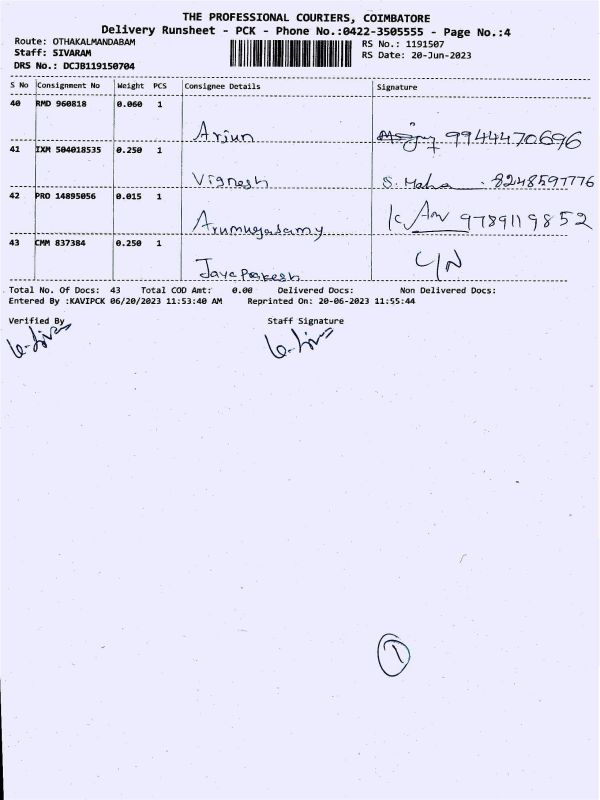 THE PROFESSIONAL COURIERS, COIMBATORE
Delivery Runsheet - PCK - Phone No.:0422-3505555 - Page No.:4
Route: OTHAKALMANDABAM
Staff: SIVARAM
DRS No.: DCJB119150704
RS No.: 1191507
RS Date: 20-Jun-2023
S No Consignment No Weight PCS Consignee Details Signature
40 RMD 960818 0.060 1
Arjun 9944470696
41 IXM 504018535 0.250 1
Vignesh S. Maha 8248597776
42 PRO 14895056 0.015 1
Arumugasamy K. 9789119852
43 CMM 837384 0.250 1
Jayaprakesh
Total No. Of Docs: 43 Total COD Amt: 0.00 Delivered Docs: Non Delivered Docs:
Entered By :KAVIPCK 06/20/2023 11:53:40 AM Reprinted On: 20-06-2023 11:55:44
Verified By Staff Signature
1